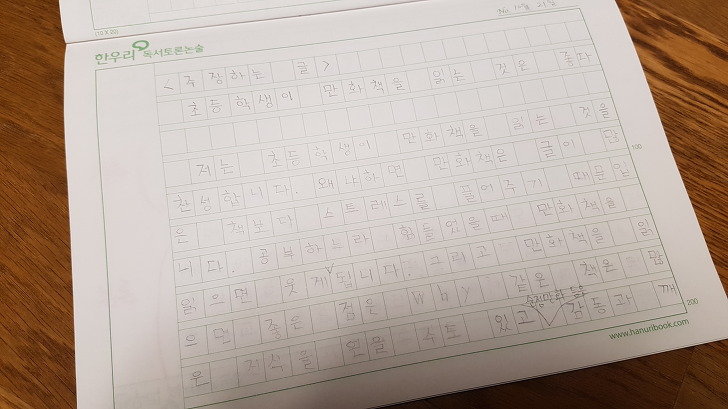 (10.8.20)
No 10월 21일
한우리 독서토론논술
<주장하는 글>
초등학생이 만화책을 읽는 것은 좋다
저는 초등학생이 만화책을 읽는 것을
찬성합니다. 왜냐하면 만화책은 글이 많
은 책보다 스트레스를 풀어주기 때문입
100
니다. 공부하느라 힘들었을때 만화책을
읽으면 웃게∨됩니다. 그리고 만화책을 읽
으면 좋은 점은 Why 같은 책은 많
순정만화 등은
은 지식을 얻을 수도 있고 감동과 깨
200
www.hanuribook.com